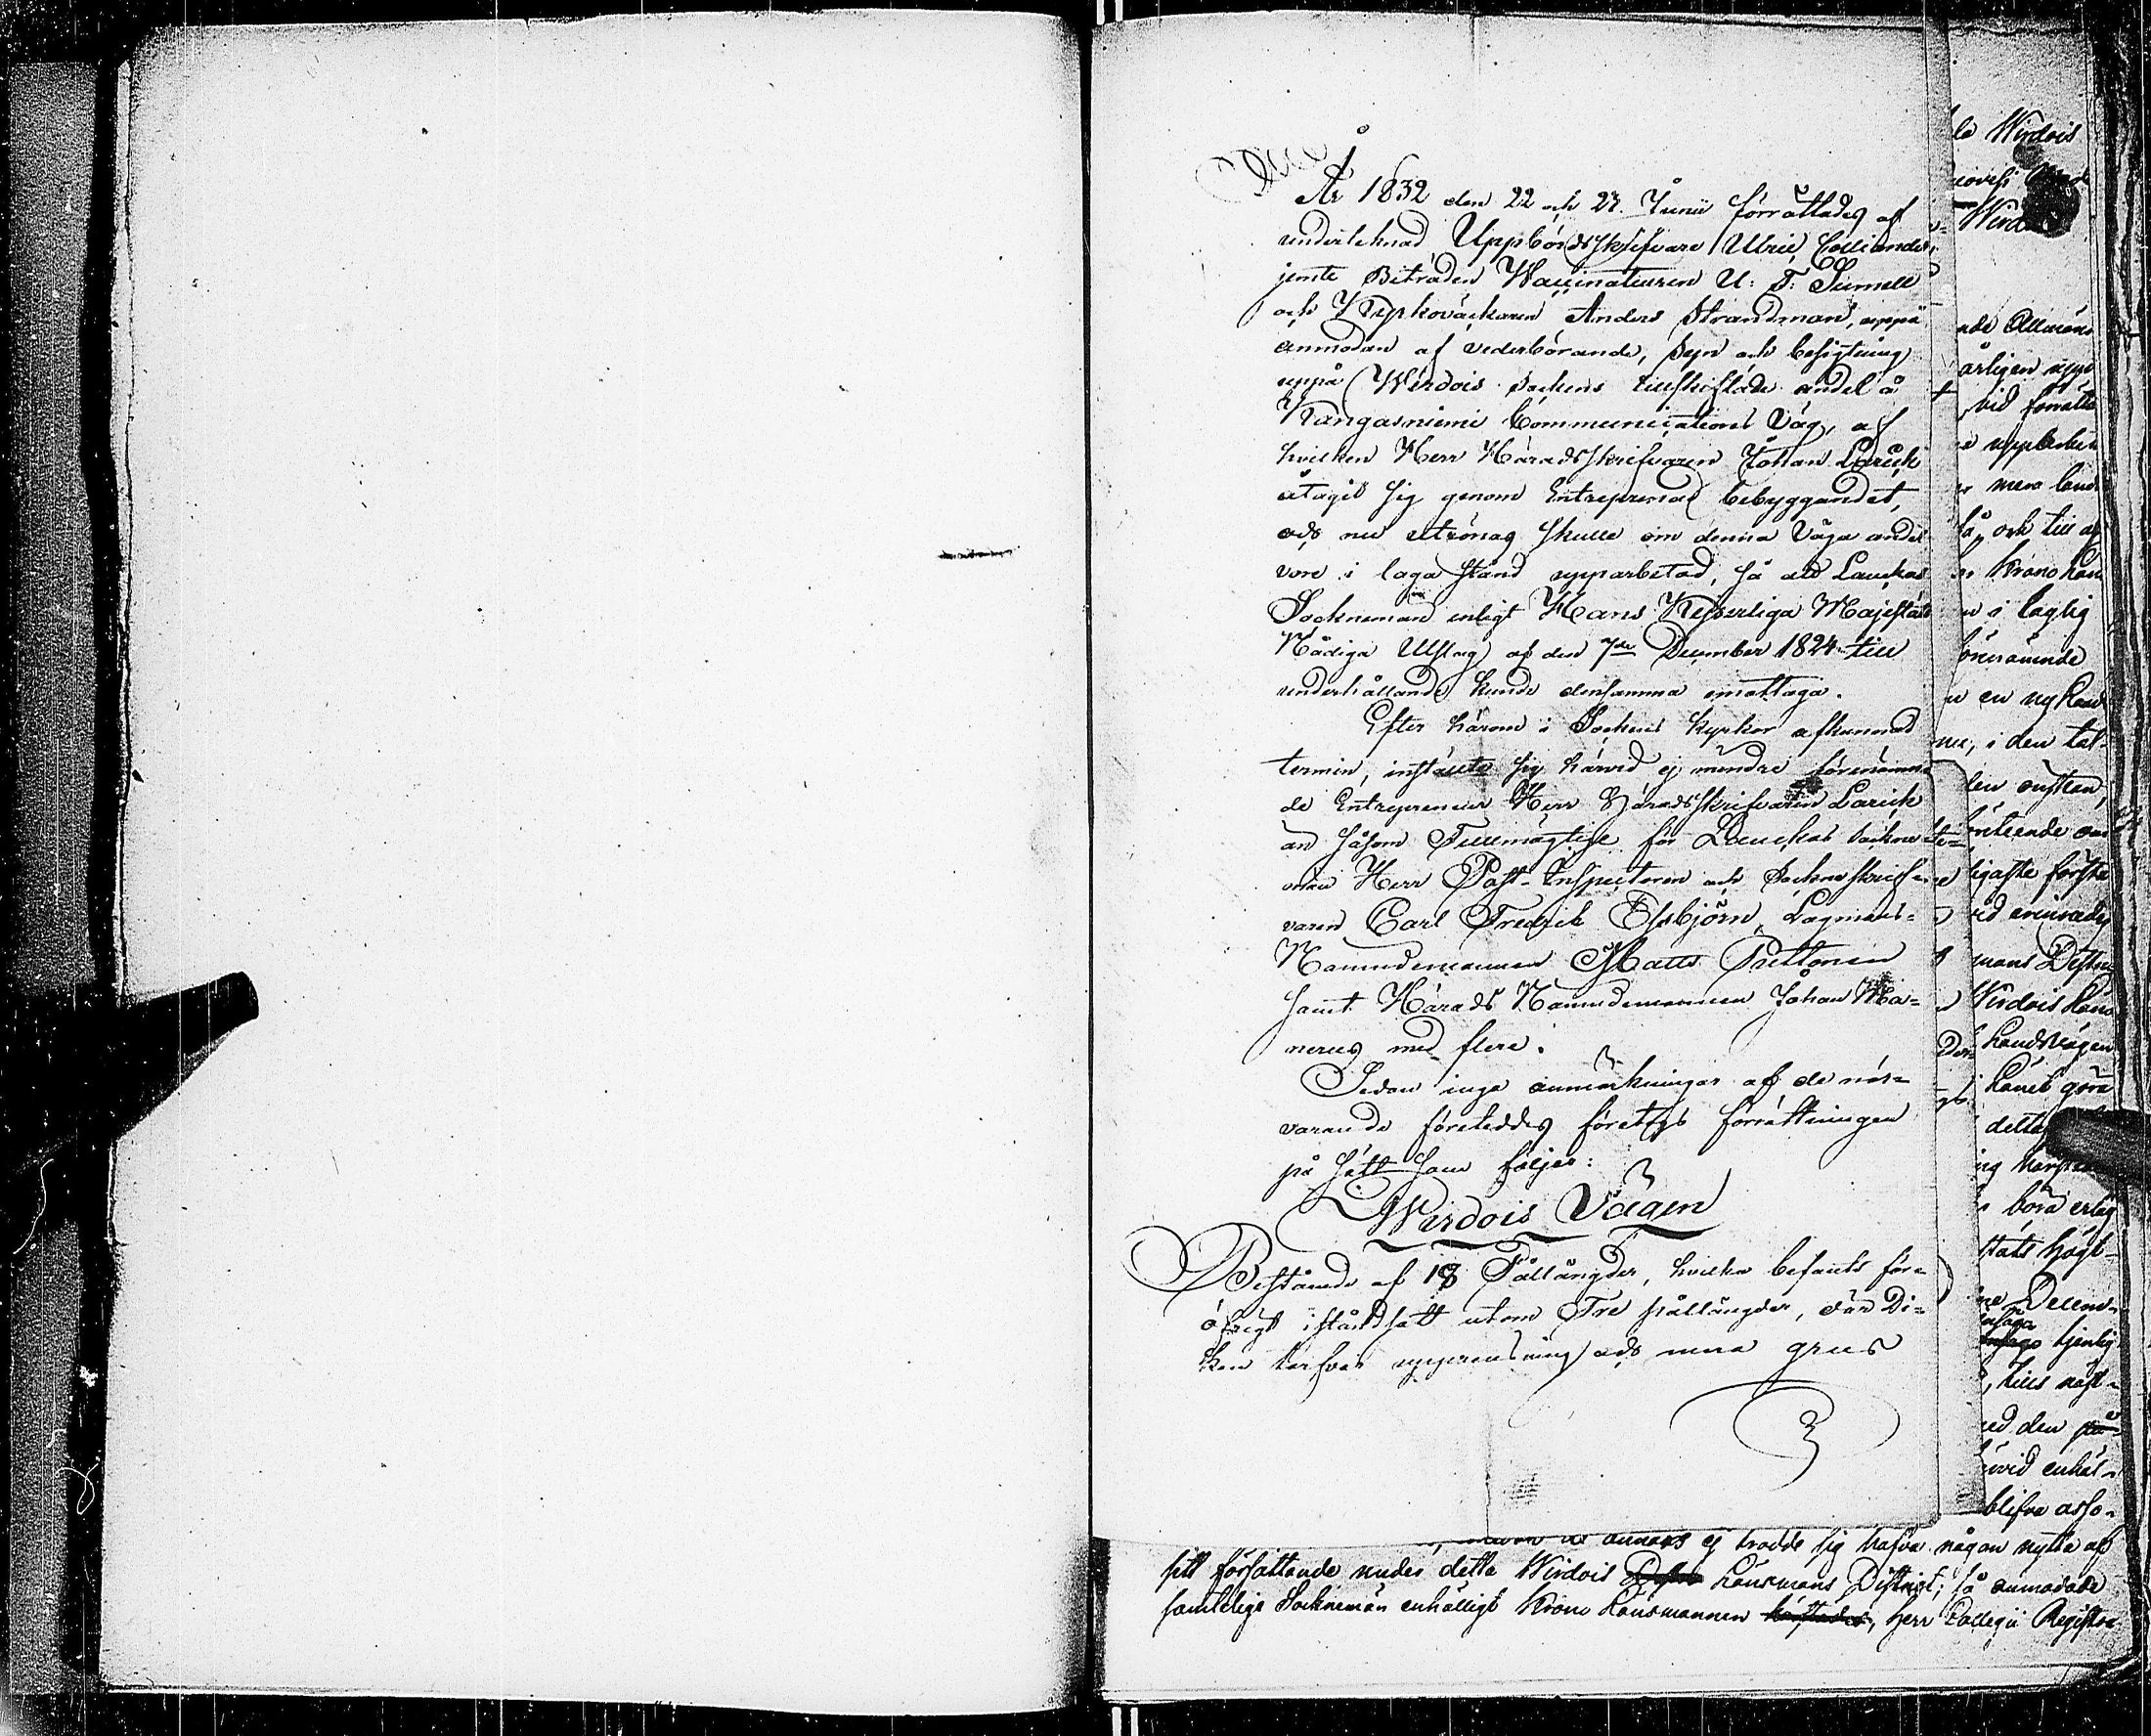 År 1832 den 22 och 23. Junii förrättades af
underteknad Uppbördsskrifvare Ulric Colliander
jemte Biträden Waccinateuren U: F: Sumell
och Kyrkoväcktaren Anders Strandman, uppå
anmodan af vederbörande, syn och besigtning
uppå Wirdois Sockens tillskiftade andel å
Kangasniemi Communications Väg, af
hvilken Herr Häradsskrifvaren Johan Larick
åtagit sig genom Entreprenad bebyggandet,
ock nu utrönas skulle om denna Väga andel
vore i laga stånd upparbetad, så att Laukas
Sockneman enligt Hans Kejserliga Majestäts
Nådiga Utslag af den 7de December 1824 till
underhållande kunde densamma emottaga.
Efter härom i Sockens kyrkor afkunnad
termin, instälte sig härvid ej mindre förenämn
de Entrepreneur Herr Häradsskrifvaren Larick
än såsom Fullmägtige för Laukas Sockne
män Herr Post-Inspectoren och Sockneskrif-
varen Carl Fredrik Essbjörn, Lagmans-
Nämndemannen Matts Puttonen
samt Härads Nämndemannen Johan Ma-
nerus med flere.
Sedan inga anmärkningar af de när-
varande företeddes företogs förrättningen
på sätt som följer:
Wirdois Vägen
Bestående af 18 Pållängder, hvilka befants för
öfrigt iståndsatt utom Tre pållängder, där Di-
ken tarfvar upprensning och mera grus
la Wirdois
Wird
ade Allmäns
årligen upp
vid förrätt
upparbet
mera land
på, och till
Krono Län
i laglig
förenämnde
en ny
nu, i den tal-
den önskan,
företeende om
ligaste första
mans Distri
Wirdois Läns
Landsvägen
Länet göra
detta
böra erläg
ståts högt-
Decem-
tjenlig
tills näst-
ed den på
blifva
annars ej trodde sig hafva någon nytta af
sitt författande under detta Wirdois Länsmans District; så anmodade
samtelige Sockneman enhälligt Krono Länsmannen, herr Collegii Registra